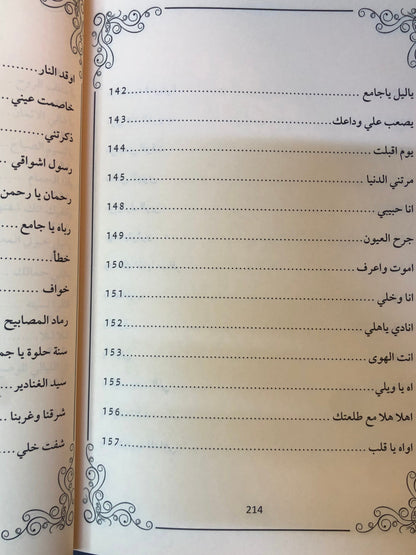 ياليل ياجامع ........ 142
يصعب علي وداعك ........ 143
يوم اقبلت ........ 144
مرتني الدنيا ........ 145
انا حبيبي ........ 148
جرح العيون ........ 149
اموت واعرف ........ 150
انا وخلي ........ 151
انادي ياهلي ........ 152
انت الهوى ........ 153
اه يا ويلي ........ 155
اهلا هلا مع طلعتك ........ 156
اواه يا قلب ........ 157
214
اوقد النار ........
خاصمت عيني ....
ذكرتني ........
رسول اشواقي ....
رحمان يا رحمن
رباه يا جامع ....
خطأ ........
خواف ........
رماد المصابيح
سنة حلوة يا جم
سيد الغنادير ....
شرقنا وغربنا ....
شفت خلي ....